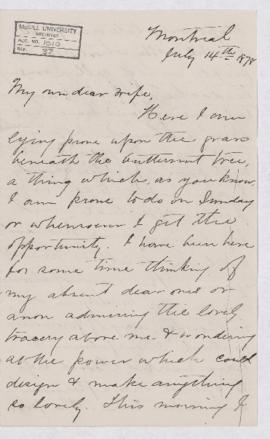 McGILL UNIVERSITY
ARCHIVES
ACC. NO. 1010
REF. 27
Montreal
July 14th 1878
My own dear wife,
Here I am
lying prone upon the grass
beneath the butternut tree,
a thing which, as you know
I am prone to do on Sunday
or whensoever I get the
opportunity. I have been here
for some time thinking of
my absent dear one or
anon admiring the lovely
tracery above me & wondering
at the power which could
design & make anything
so lovely. This morning I